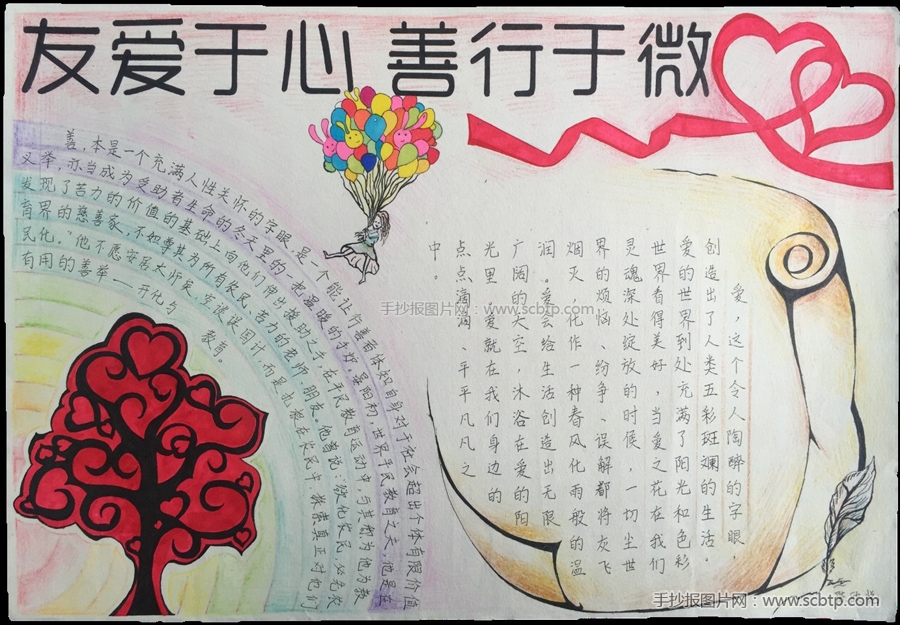 友爱于心 善行于微
善,本是一个充满人性关怀的字眼,是一个能让行善者体知自身对于社会超出个体有限价值
义举,亦当成为受助者生命的冬天里的一把温暖的
发现了苦力的价值的基础上,向他们伸出援助之手,在平民教育运动中
育界的慈善家,不如尊其为所有农民、苦力的老师、朋友。他曾说:"欲化农民,必先农
民化,"他不愿安居大师
有用的善举——开化与教育。
爱,这个令人陶醉的字眼,
创造出了人类五彩斑斓的生活。
爱的世界到处充满了阳光和色彩
世界看得美好,当爱之花在我们
灵魂深处绽放的时候,一切尘世
界的烦恼、纷争、误解都将灰飞
烟灭,化作一种春风化雨般的温
润。爱会给生活创造出无限
广阔的天空,沐浴在爱的阳
光里,爱就在我们身边的
点点滴滴、平平凡凡之
中。
手抄报图片网:www.scbtp.com
手抄报图片网:www.scbtp.com